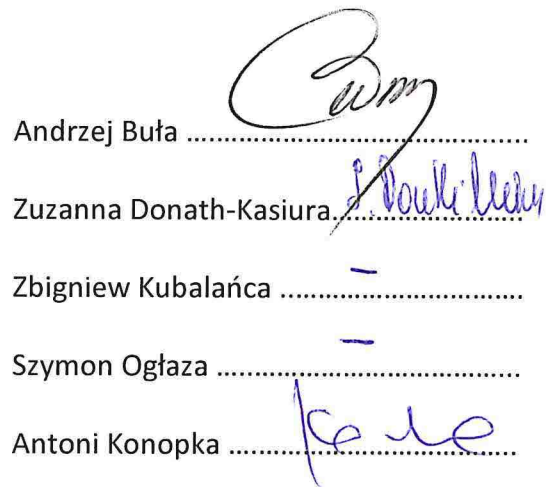 Andrzej Buła ........................................................
Zuzanna Donath-Kasiura................................
Zbigniew Kubalańca ........................................
–
Szymon Ogłaza ..................................................
–
Antoni Konopka ................................................